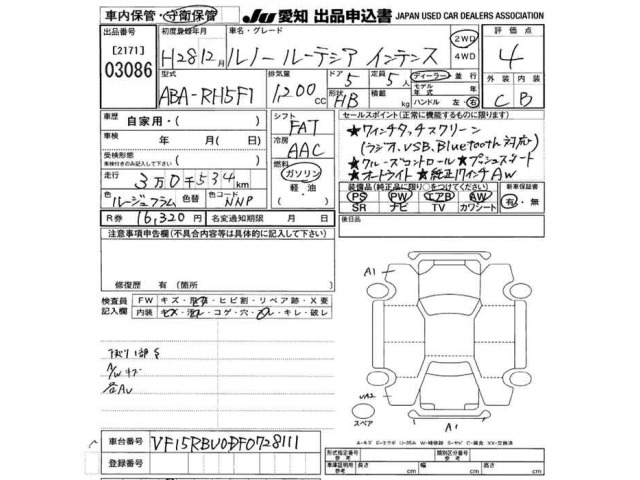 車内保管・守衛保管
JU 愛知 出品申込書 JAPAN USED CAR DEALERS ASSOCIATION
出品番号 [2171] 03086
初度登録年月 H28 12月
車名・グレード ルノー ルーテシア インテンス
2WD 4WD
評価点 4
型式 ABA-RH5F1
排気量 1200 CC
ドア 5
形状 HB
定員 5人
積載 kg
ディーラー 並行
モデル年式 年
ハンドル 左・右
外装 C 内装 B
車歴 自家用・( )
車検 年 月( 日)
受検形態 ( )
車検付きのみ記入して下さい
走行 3万0千534km
色 ルージュフラム 色替
色コード NNP
シフト FAT
冷房 AAC
ガソリン
軽・油
( )
セールスポイント(正常に機能するものに限ります)
★7インチタッチスクリーン
(ラジオ、USB、Bluetooth対応)
★クルーズコントロール ★プッシュスタート
★オートライト ★純正17インチAW
装備品(純正品に限り○をつけてください)
PS PW エアB AW
SR ナビ TV カワシート
新車保証書 有・無
R券 16,320円 名変通知期限 月 日
後日品
注意事項申告欄(不具合内容等は具体的に記入して下さい)
修復歴 有(箇所 )
検査員記入欄
FW キズ・飛石・ヒビ割・リペア跡・X要
内装 キズ・汚レ・コゲ・穴・スレ・キレ・破レ
下廻り1部S
A/Wキズ
各AU
A1
UA2
A1
スペア
A-キズ E-エクボ U-凹み W-補修跡 S-サビ C-腐食 XX-交換済
車台番号 VF15RBU0DF0728111
登録番号
形式指定番号 参考
類別区分番号 参考
車庫証明用 参考 長さ cm 幅 cm 高さ cm